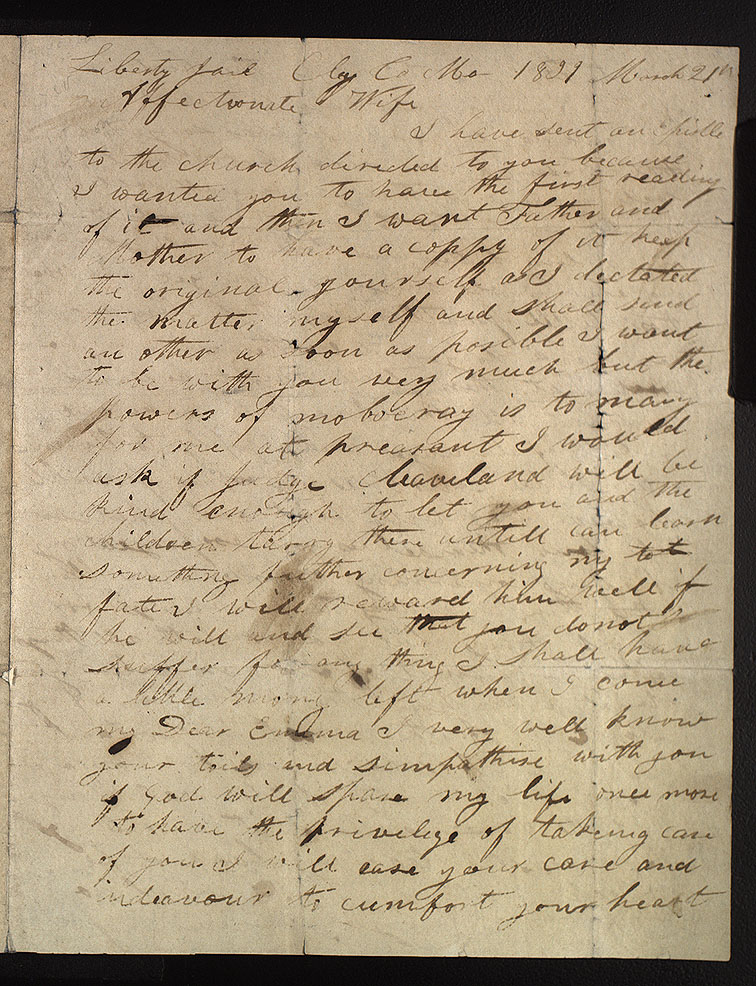 Liberty Jail Clay Co Mo 1839 March 21st
Affectionate Wife
I have sent an Epistle
to the church directed to you because
I wanted you to have the first reading
of it and then I want Father and
Mother to have a coppy of it keep
the original yourself as I dectated
the matter myself and shall send
an other as soon as posible I want
to be with you very much but the
powers of mobocray is to many
for me at preasant I would
ask if Judge Cleaveland will be
kind enough to let you and the
children tarry there untill can learn
something further concerning my
fate I will reward him well if
he will and see that you do not
suffer for any thing I shall have
a little mony left when I come
my Dear Emma I very well know
your toils and simpathise with you
if God will spare my life once more
to have the privelege of takeing care
of you I will ease your care and
indeavour to cumfort your heart